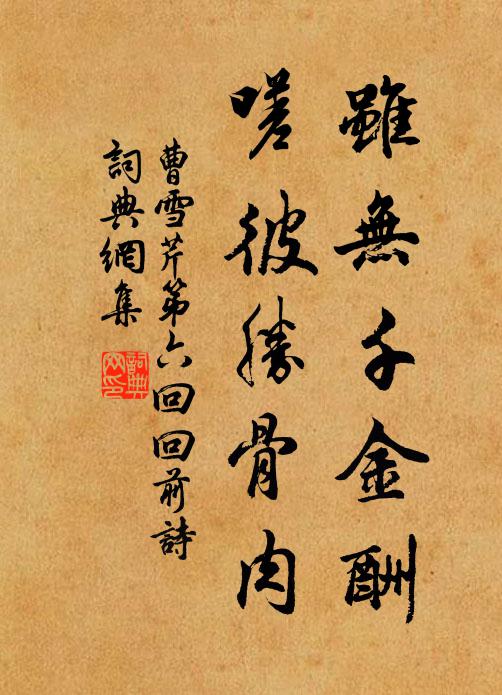 雖無千金酬
嗟彼勝骨肉
曹雪芹第六回回前詩
詞典網集
詞典网印